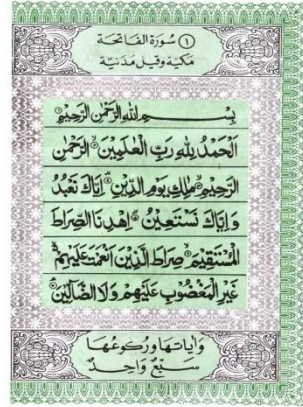 (١) سُوْرَةُ الْفَاتِحَةِ
مَكِّيَّةٌ وَقِيْلَ مَدَنِيَّةٌ
بِسْمِ اللهِ الرَّحْمٰنِ الرَّحِيْمِ
اَلْحَمْدُ لِلّٰهِ رَبِّ الْعٰلَمِيْنَ الرَّحْمٰنِ
الرَّحِيْمِ مٰلِكِ يَوْمِ الدِّيْنِ اِيَّاكَ نَعْبُدُ
وَاِيَّاكَ نَسْتَعِيْنُ اِهْدِنَا الصِّرَاطَ
الْمُسْتَقِيْمَ صِرَاطَ الَّذِيْنَ اَنْعَمْتَ عَلَيْهِمْ
غَيْرِ الْمَغْضُوْبِ عَلَيْهِمْ وَلَا الضَّآلِّيْنَ
وَاٰيَاتُهَا وَرُكُوْعُهَا
سَبْعٌ وَاحِدٌ